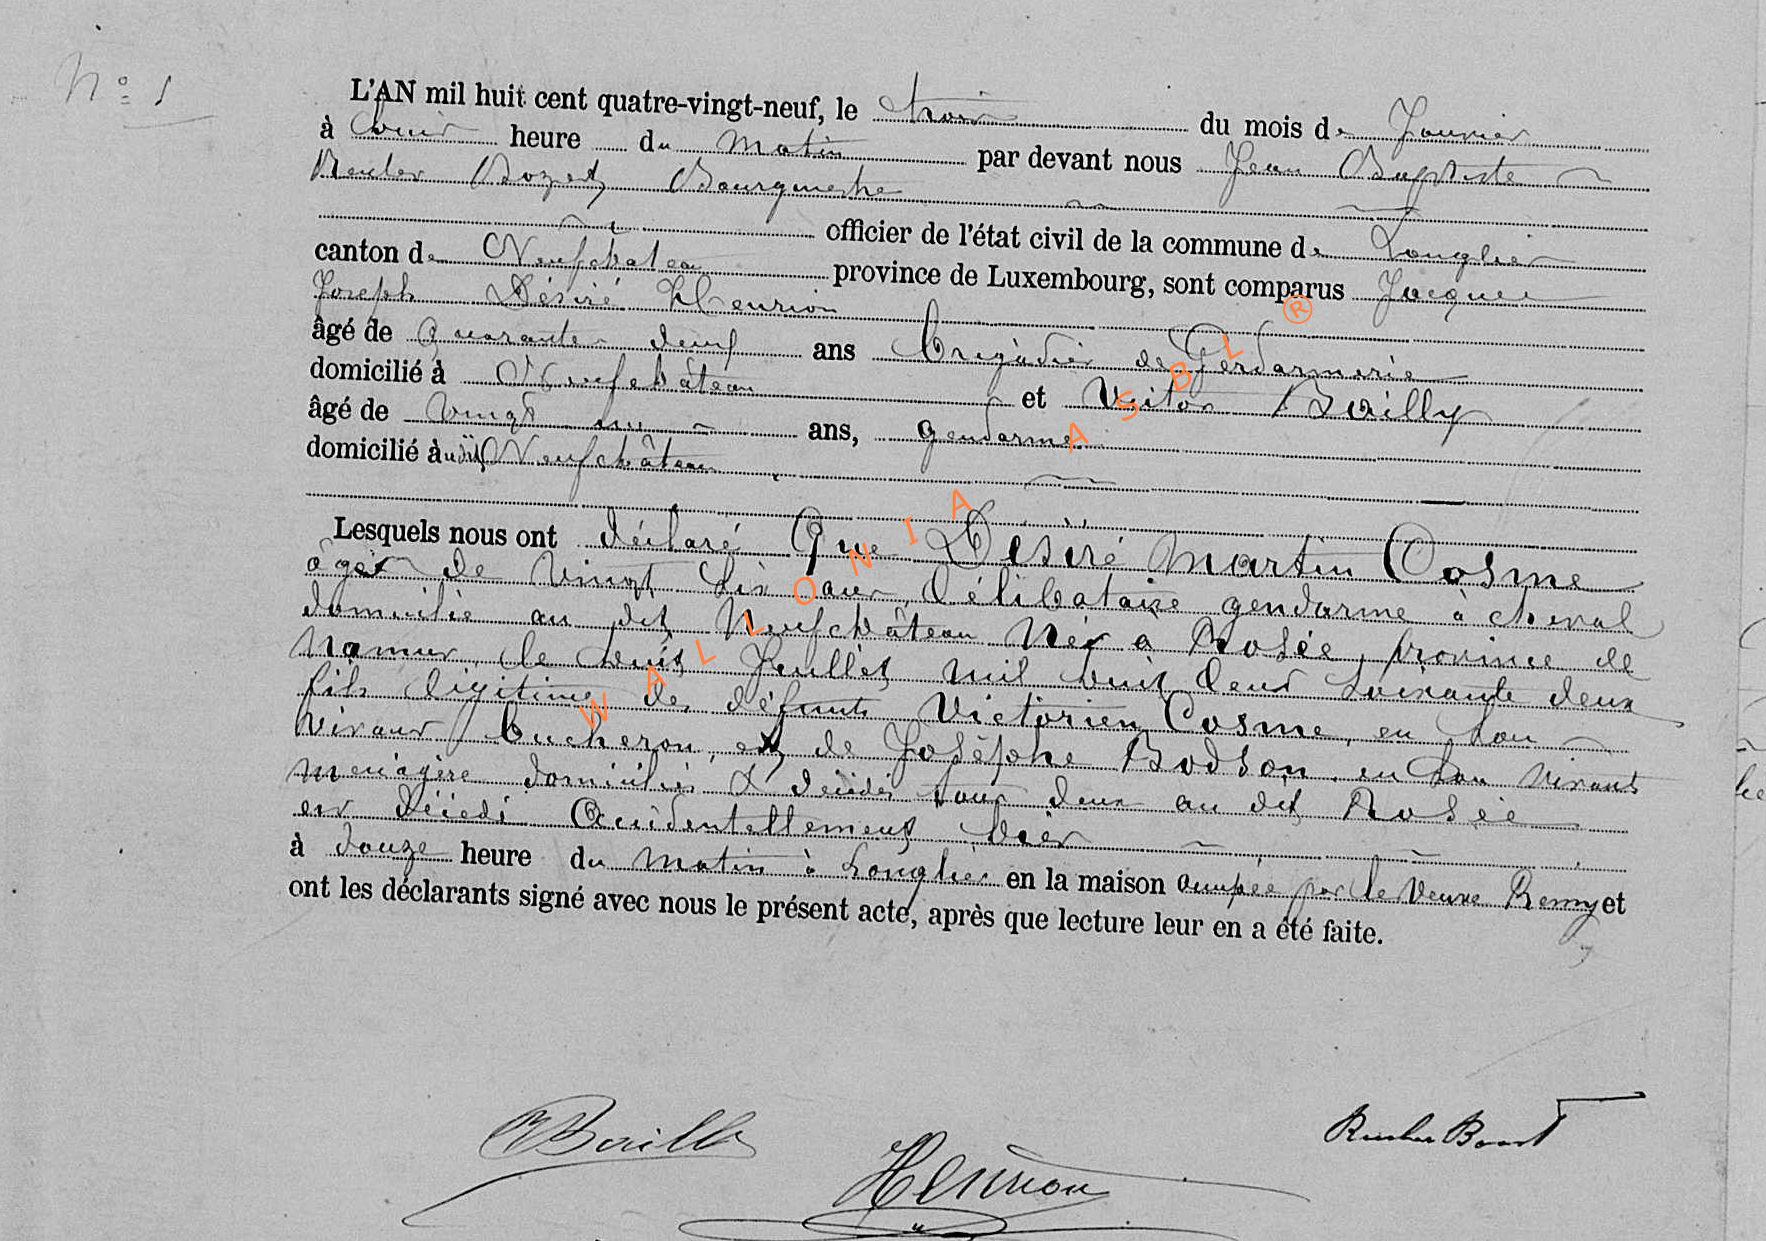 N° 1
L'AN mil huit cent quatre-vingt-neuf, le trois du mois de Janvier
à huit heure du matin par devant nous Jean Baptiste
Reuler Bozet Bourgmestre
officier de l'état civil de la commune de Longlier
canton de Neufchâteau province de Luxembourg, sont comparus Jacques
Joseph Désiré Henrion
âgé de quarante neuf ans Brigadier de Gendarmerie
domicilié à Neufchâteau et Victor Bailly
âgé de Vingt un ans, gendarme
domicilié à udit Neufchâteau
Lesquels nous ont déclaré Que Désiré Martin Cosme
âgé de Vingt Six ans, Célibataire gendarme à cheval
domicilié au dit Neufchâteau Né à Rosée, province de
Namur, le huit Juillet mil huit Cent Soixante deux
fils légitime de défunts Victorien Cosme, en son
vivant bucheron, et de Josephe Bodson, en son vivant
menagère domiciliés & décédés tous deux au dit Rosée
est décédé Accidentellement hier
à douze heure du matin à Longlier en la maison occupée par la Veuve Remy et
ont les déclarants signé avec nous le présent acte, après que lecture leur en a été faite.
Bailly
Henrion
WALLONIA ASBL ®